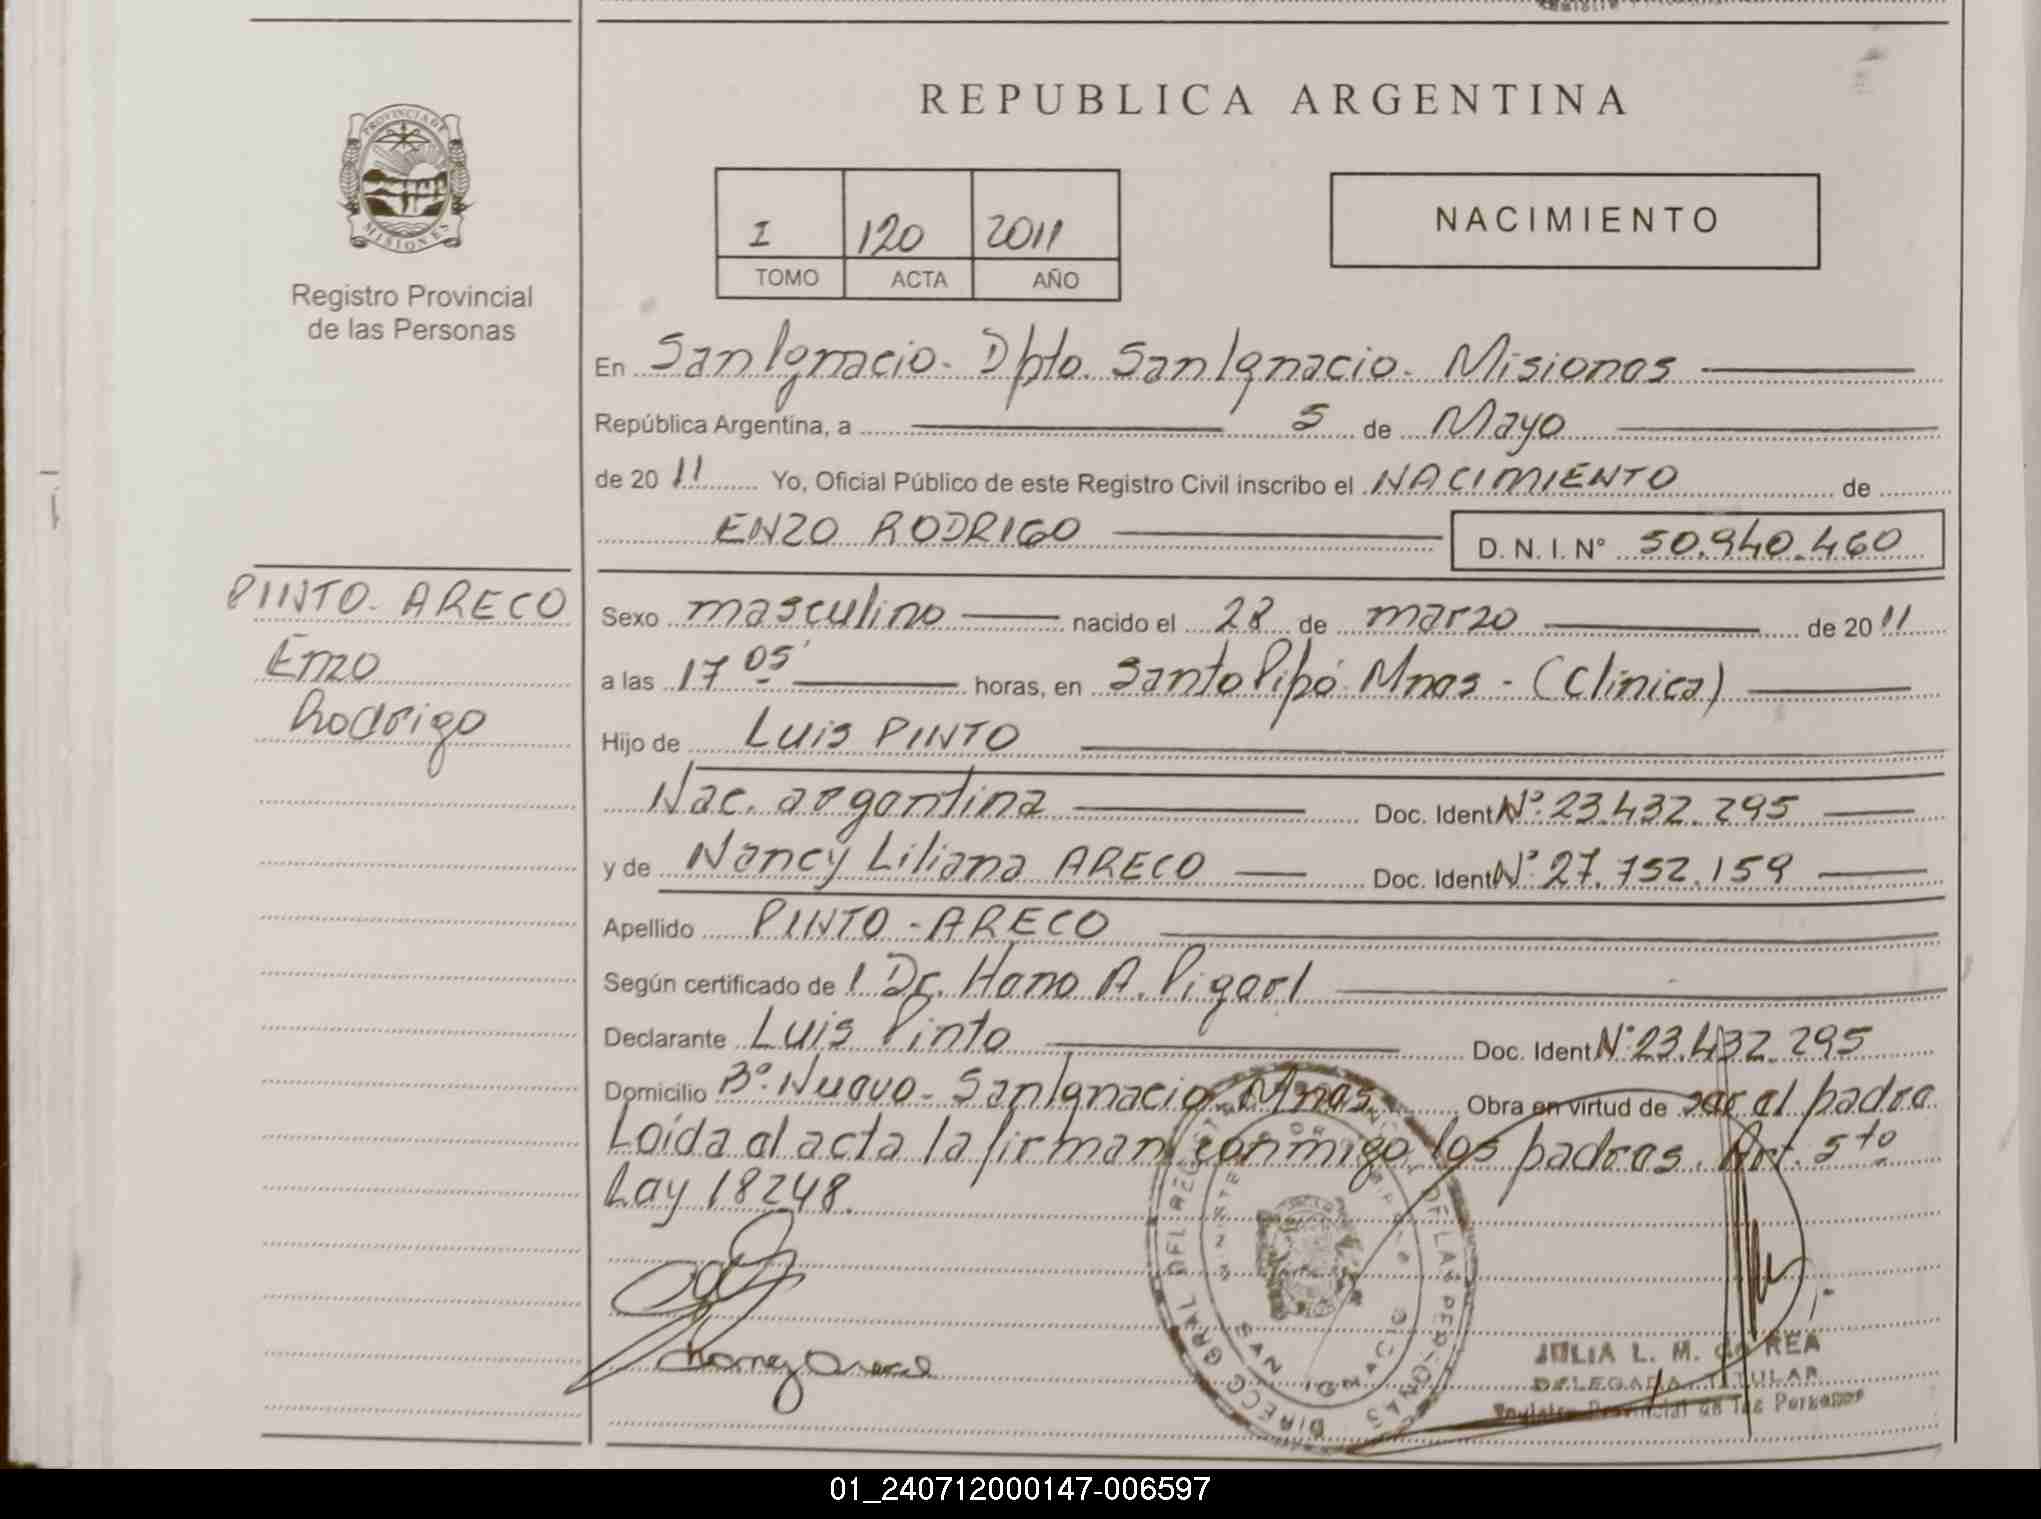 REPUBLICA ARGENTINA
PROVINCIA DE
MISIONES
Registro Provincial
de las Personas
I 120 2011
TOMO ACTA AÑO
NACIMIENTO
En San Ignacio. Dpto. San Ignacio. Misiones
República Argentina, a 5 de Mayo
de 20 11 Yo, Oficial Público de este Registro Civil inscribo el NACIMIENTO de
ENZO RODRIGO D. N. I. Nº 50.940.460
PINTO-ARECO
Enzo
Rodrigo
Sexo masculino nacido el 28 de marzo de 20 11
a las 17 05' horas, en Santo Pipó Mnes - (Clinica)
Hijo de Luis PINTO
Nac. argentina Doc. Ident Nº 23.432.295
y de Nancy Liliana ARECO Doc. Ident Nº 27.752.159
Apellido PINTO-ARECO
Según certificado de l Dr. Hano A. Pigerl
Declarante Luis Pinto Doc. Ident Nº 23.432.295
Domicilio Bº Nuevo - San Ignacio Mnes Obra en virtud de ser el padre
Leída el acta la firman conmigo los padres. Art. 5to
Ley 18248.
Nancy Areco
DIRECC GRAL DEL REG DE LAS PERSONAS
SAN IGNACIO
JULIA L. M. CORREA
DELEGADA TITULAR
Registro Provincial de las Personas
01_240712000147-006597